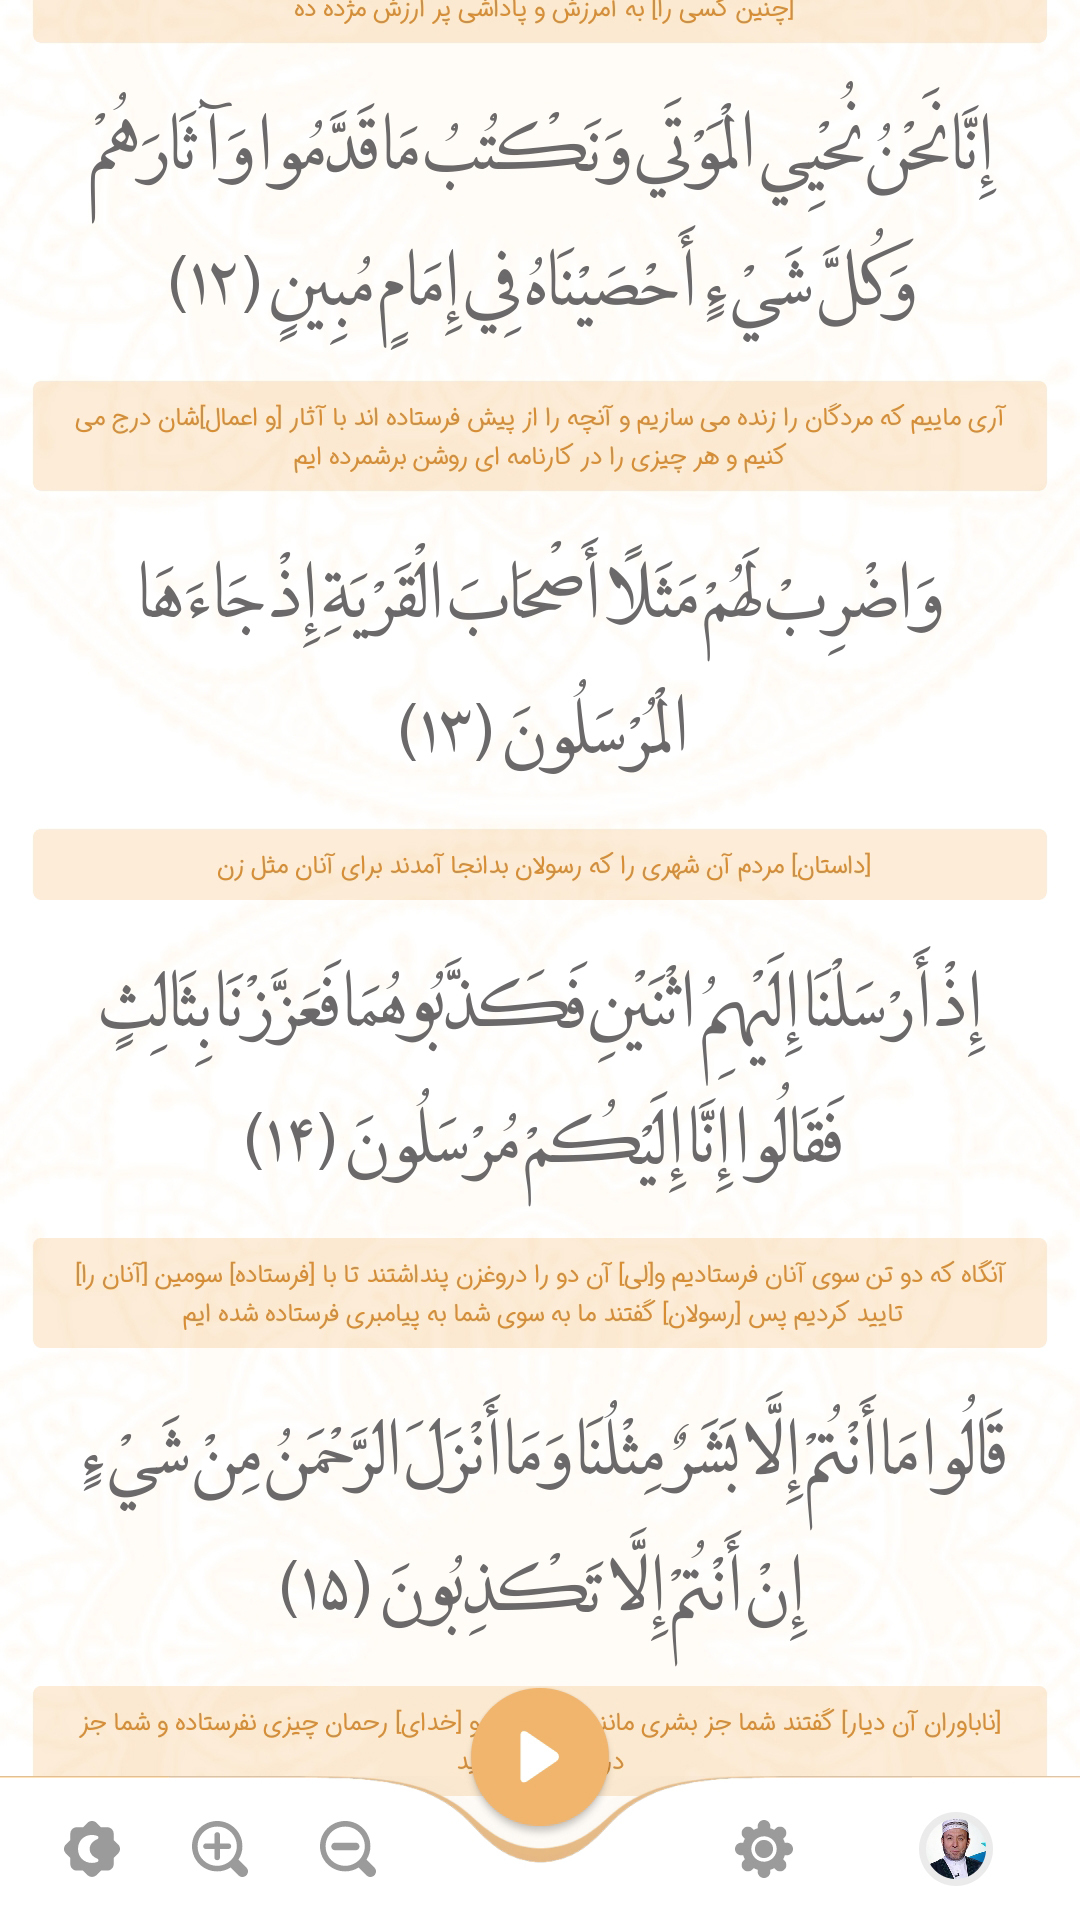 [چنین کسی را] به آمرزش و پاداشی پر ارزش مژده ده
إِنَّا نَحْنُ نُحْيِي الْمَوْتَي وَنَكْتُبُ مَا قَدَّمُوا وَآثَارَهُمْ
وَكُلَّ شَيْءٍ أَحْصَيْنَاهُ فِي إِمَامٍ مُبِينٍ (۱۲)
آری ماییم که مردگان را زنده می سازیم و آنچه را از پیش فرستاده اند با آثار [و اعمال]شان درج می
کنیم و هر چیزی را در کارنامه ای روشن برشمرده ایم
وَاضْرِبْ لَهُمْ مَثَلًا أَصْحَابَ الْقَرْيَةِ إِذْ جَاءَهَا
الْمُرْسَلُونَ (۱۳)
[داستان] مردم آن شهری را که رسولان بدانجا آمدند برای آنان مثل زن
إِذْ أَرْسَلْنَا إِلَيْهِمُ اثْنَيْنِ فَكَذَّبُوهُمَا فَعَزَّزْنَا بِثَالِثٍ
فَقَالُوا إِنَّا إِلَيْكُمْ مُرْسَلُونَ (۱۴)
آنگاه که دو تن سوی آنان فرستادیم و[لی] آن دو را دروغزن پنداشتند تا با [فرستاده] سومین [آنان را]
تایید کردیم پس [رسولان] گفتند ما به سوی شما به پیامبری فرستاده شده ایم
قَالُوا مَا أَنْتُمْ إِلَّا بَشَرٌ مِثْلُنَا وَمَا أَنْزَلَ الرَّحْمَنُ مِنْ شَيْءٍ
إِنْ أَنْتُمْ إِلَّا تَكْذِبُونَ (۱۵)
[ناباوران آن دیار] گفتند شما جز بشری و [خدای] رحمان چیزی نفرستاده و شما جز